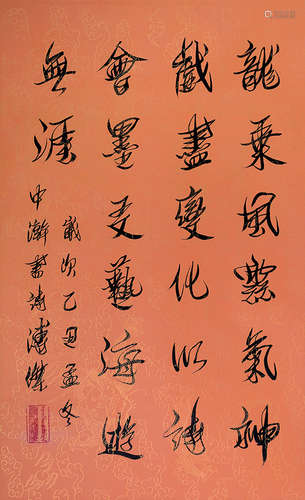 龍乘風氣神
戲盡變化以詩
會墨友藝海遊
無涯
歲次乙丑孟冬
中瀚書詩溥傑